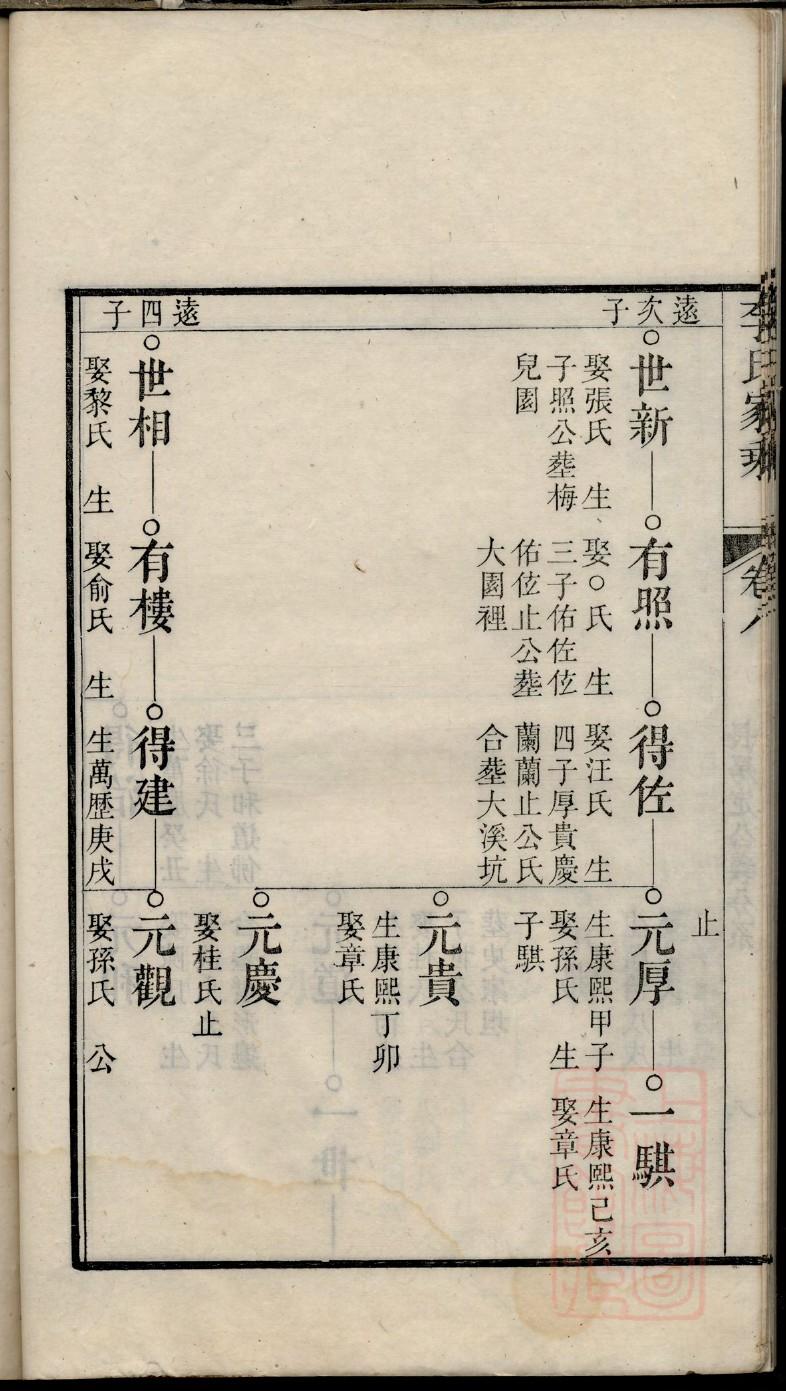 李氏家乘
卷八
遠次子
世新
娶張氏 生
子照公塟梅
兒園
有照
娶○氏 生
三子佑佐伭
佑伭止公塟
大園裡
得佐
娶汪氏 生
四子厚貴慶
蘭蘭止公氏
合塟大溪坑
止
元厚
生康熙甲子
娶孫氏 生
子騏
一騏
生康熙己亥
娶章氏
元貴
生康熙丁卯
娶章氏
元慶
娶桂氏止
遠四子
世相
娶黎氏 生
有樓
娶俞氏 生
得建
生萬歷庚戌
元觀
娶孫氏 公